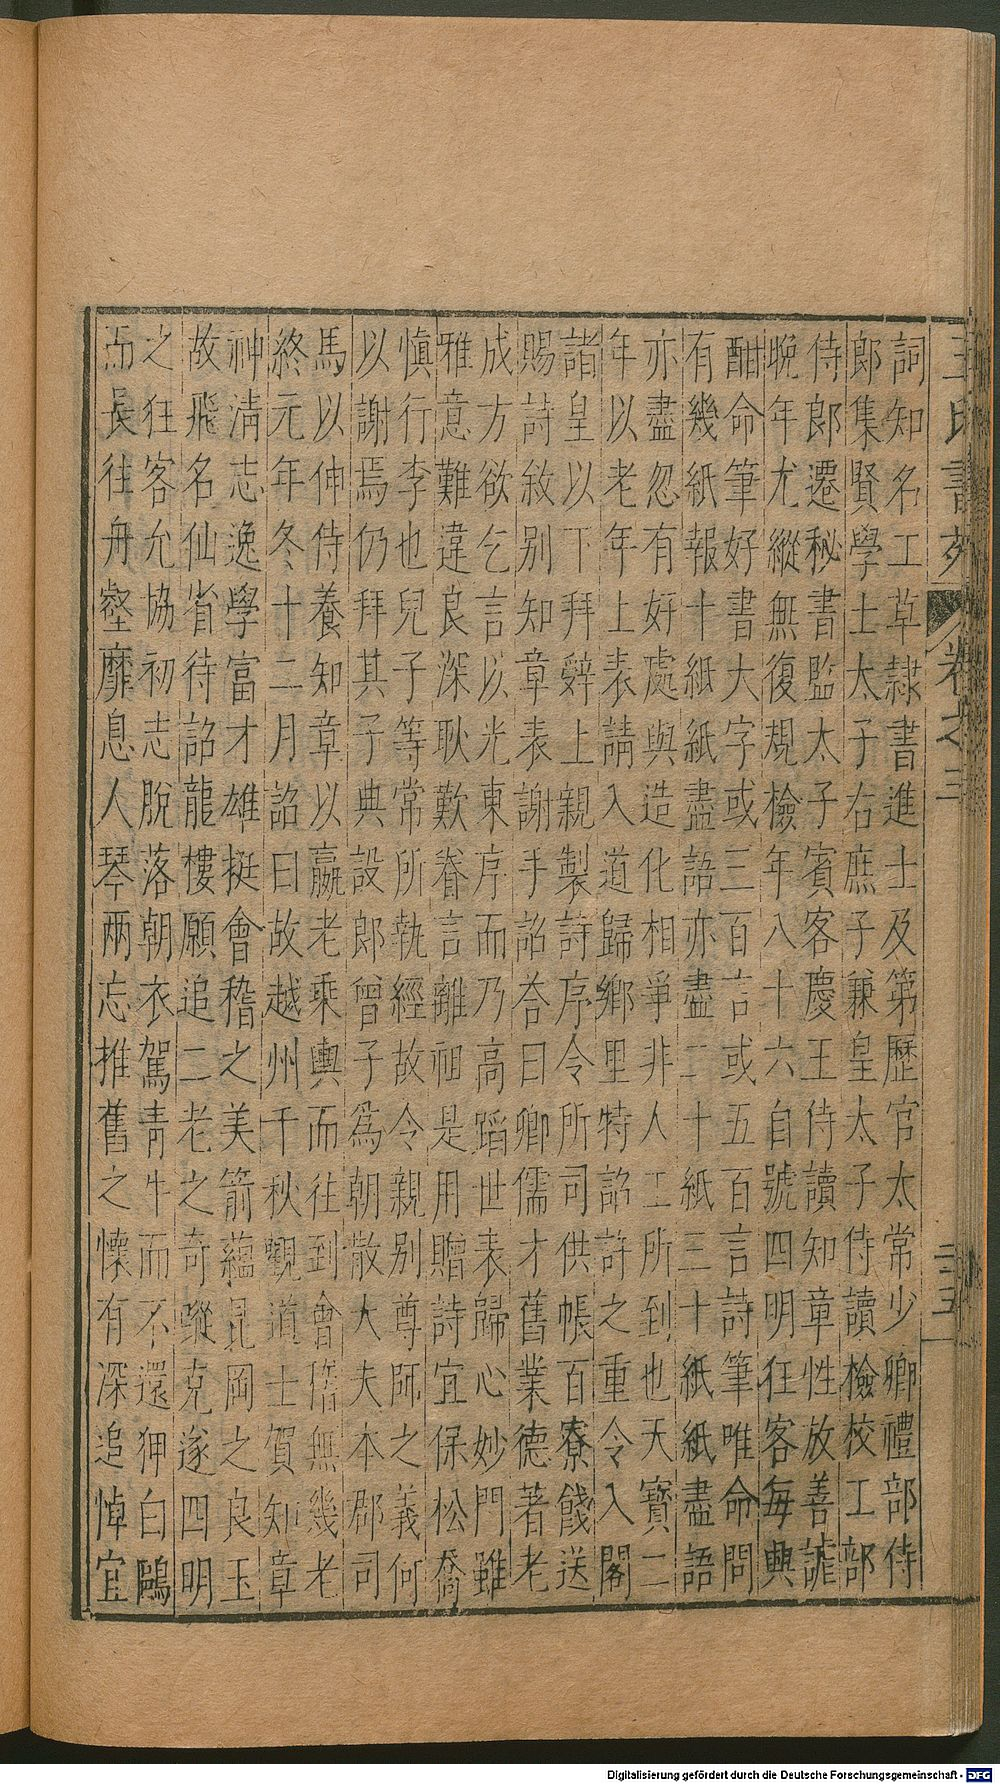 王氏書苑 卷之三 三五
詞知名工草隷書進士及第歷官太常少卿禮部侍
郎集賢學士太子右庶子兼皇太子侍讀檢校工部
侍郎遷秘書監太子賓客慶王侍讀知章性放善謔
晚年尤縱無復規檢年八十六自號四明狂客每興
酣命筆好書大字或三百言或五百言詩筆唯命問
有幾紙報十紙紙盡語亦盡二十紙三十紙紙盡語
亦盡忽有好處與造化相爭非人工所到也天寶二
年以老年上表請入道歸鄉里特詔許之重令入閣
諸皇以下拜辤上親製詩序令所司供帳百寮餞送
賜詩敘別知章表謝手詔荅曰卿儒才舊業德著老
成方欲乞言以光東序而乃高蹈世表歸心妙門雖
雅意難違良深耿歎眷言離祖是用贈詩宜保松喬
慎行李也兒子等常所執經故令親別尊師之義何
以謝焉仍拜其子典設郎曾子為朝散大夫本郡司
馬以伸侍養知章以羸老乘輿而往到會稽無幾老
終元年冬十二月詔曰故越州千秋觀道士賀知章
神清志逸學富才雄挺會稽之美箭蘊昆岡之良玉
故飛名仙省待詔龍樓願追二老之奇蹤克遂四明
之狂客允協初志脫落朝衣駕青牛而不還狎白鷗
而長往舟壑靡息人琴兩忘推舊之懷有深追悼宜
Digitalisierung gefördert durch die Deutsche Forschungsgemeinschaft - DFG